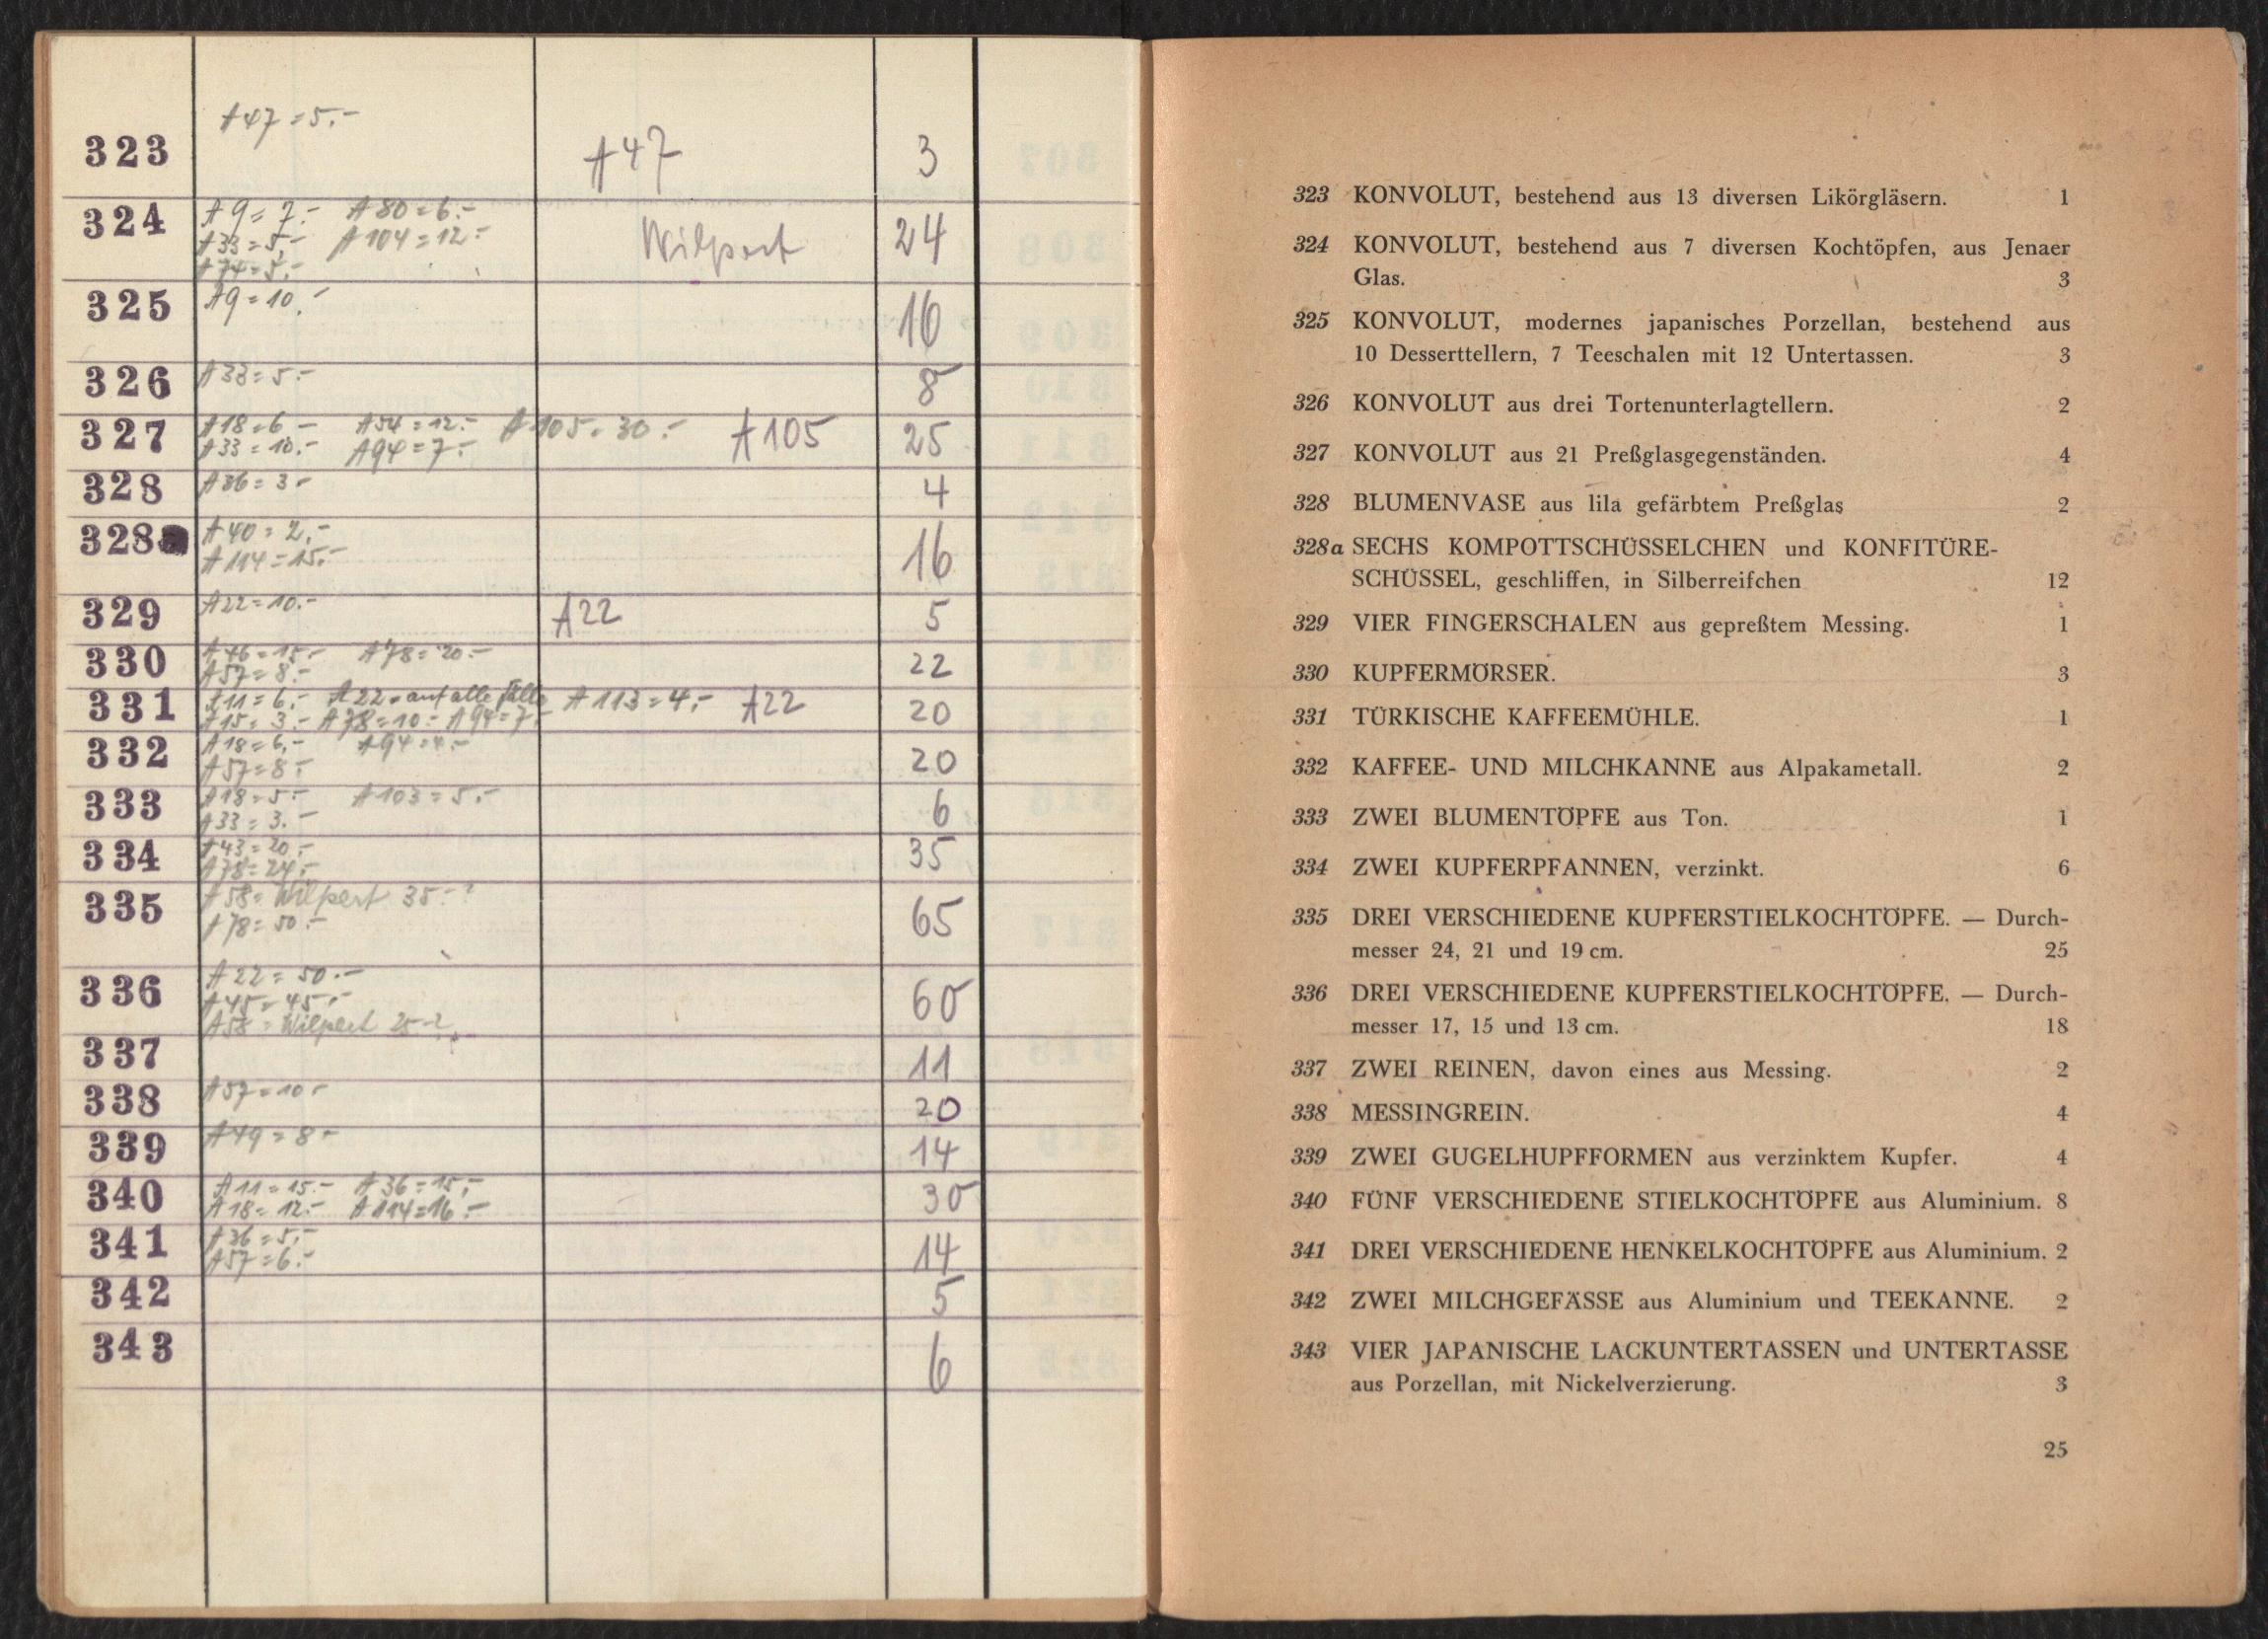 A47 = 5.-
323 A47 3
324 A9 = 7.- A80 = 6.- Wilpert 24
A33 = 5.- A104 = 12.-
A74 = 5.-
325 A9 = 10.- 16
326 A33 = 5.- 8
327 A18 = 6.- A54 = 12.- A105 = 30.- A105 25
A33 = 10.- A94 = 7.-
328 A36 = 3.- 4
328a A40 = 2.- 16
A114 = 15.-
329 A22 = 10.- A22 5
330 A46 = 15.- A78 = 20.- 22
A57 = 8.-
331 A11 = 6.- A22 = auf alle Fälle A113 = 4.- A22 20
A15 = 3.- A78 = 10.- A94 = 7.-
332 A18 = 6.- A94 = 4.- 20
A57 = 8.-
333 A18 = 5.- A103 = 5.- 6
A33 = 3.-
334 A43 = 20.- 35
A78 = 24.-
335 A58 = Wilpert 35.-? 65
A78 = 50.-
336 A22 = 50.- 60
A45 = 45.-
A58 = Wilpert 25-?
337 11
338 A57 = 10.- 20
339 A49 = 8.- 14
340 A11 = 15.- A36 = 15.- 30
A18 = 12.- A114 = 16.-
341 A36 = 5.- 14
A57 = 6.-
342 5
343 6
323 KONVOLUT, bestehend aus 13 diversen Likörgläsern. 1
324 KONVOLUT, bestehend aus 7 diversen Kochtöpfen, aus Jenaer
Glas. 3
325 KONVOLUT, modernes japanisches Porzellan, bestehend aus
10 Desserttellern, 7 Teeschalen mit 12 Untertassen. 3
326 KONVOLUT aus drei Tortenunterlagtellern. 2
327 KONVOLUT aus 21 Preßglasgegenständen. 4
328 BLUMENVASE aus lila gefärbtem Preßglas 2
328a SECHS KOMPOTTSCHÜSSELCHEN und KONFITÜRE-
SCHÜSSEL, geschliffen, in Silberreifchen 12
329 VIER FINGERSCHALEN aus gepreßtem Messing. 1
330 KUPFERMÖRSER. 3
331 TÜRKISCHE KAFFEEMÜHLE. 1
332 KAFFEE- UND MILCHKANNE aus Alpakametall. 2
333 ZWEI BLUMENTÖPFE aus Ton. 1
334 ZWEI KUPFERPFANNEN, verzinkt. 6
335 DREI VERSCHIEDENE KUPFERSTIELKOCHTÖPFE. — Durch-
messer 24, 21 und 19 cm. 25
336 DREI VERSCHIEDENE KUPFERSTIELKOCHTÖPFE. — Durch-
messer 17, 15 und 13 cm. 18
337 ZWEI REINEN, davon eines aus Messing. 2
338 MESSINGREIN. 4
339 ZWEI GUGELHUPFFORMEN aus verzinktem Kupfer. 4
340 FÜNF VERSCHIEDENE STIELKOCHTÖPFE aus Aluminium. 8
341 DREI VERSCHIEDENE HENKELKOCHTÖPFE aus Aluminium. 2
342 ZWEI MILCHGEFÄSSE aus Aluminium und TEEKANNE. 2
343 VIER JAPANISCHE LACKUNTERTASSEN und UNTERTASSE
aus Porzellan, mit Nickelverzierung. 3
25